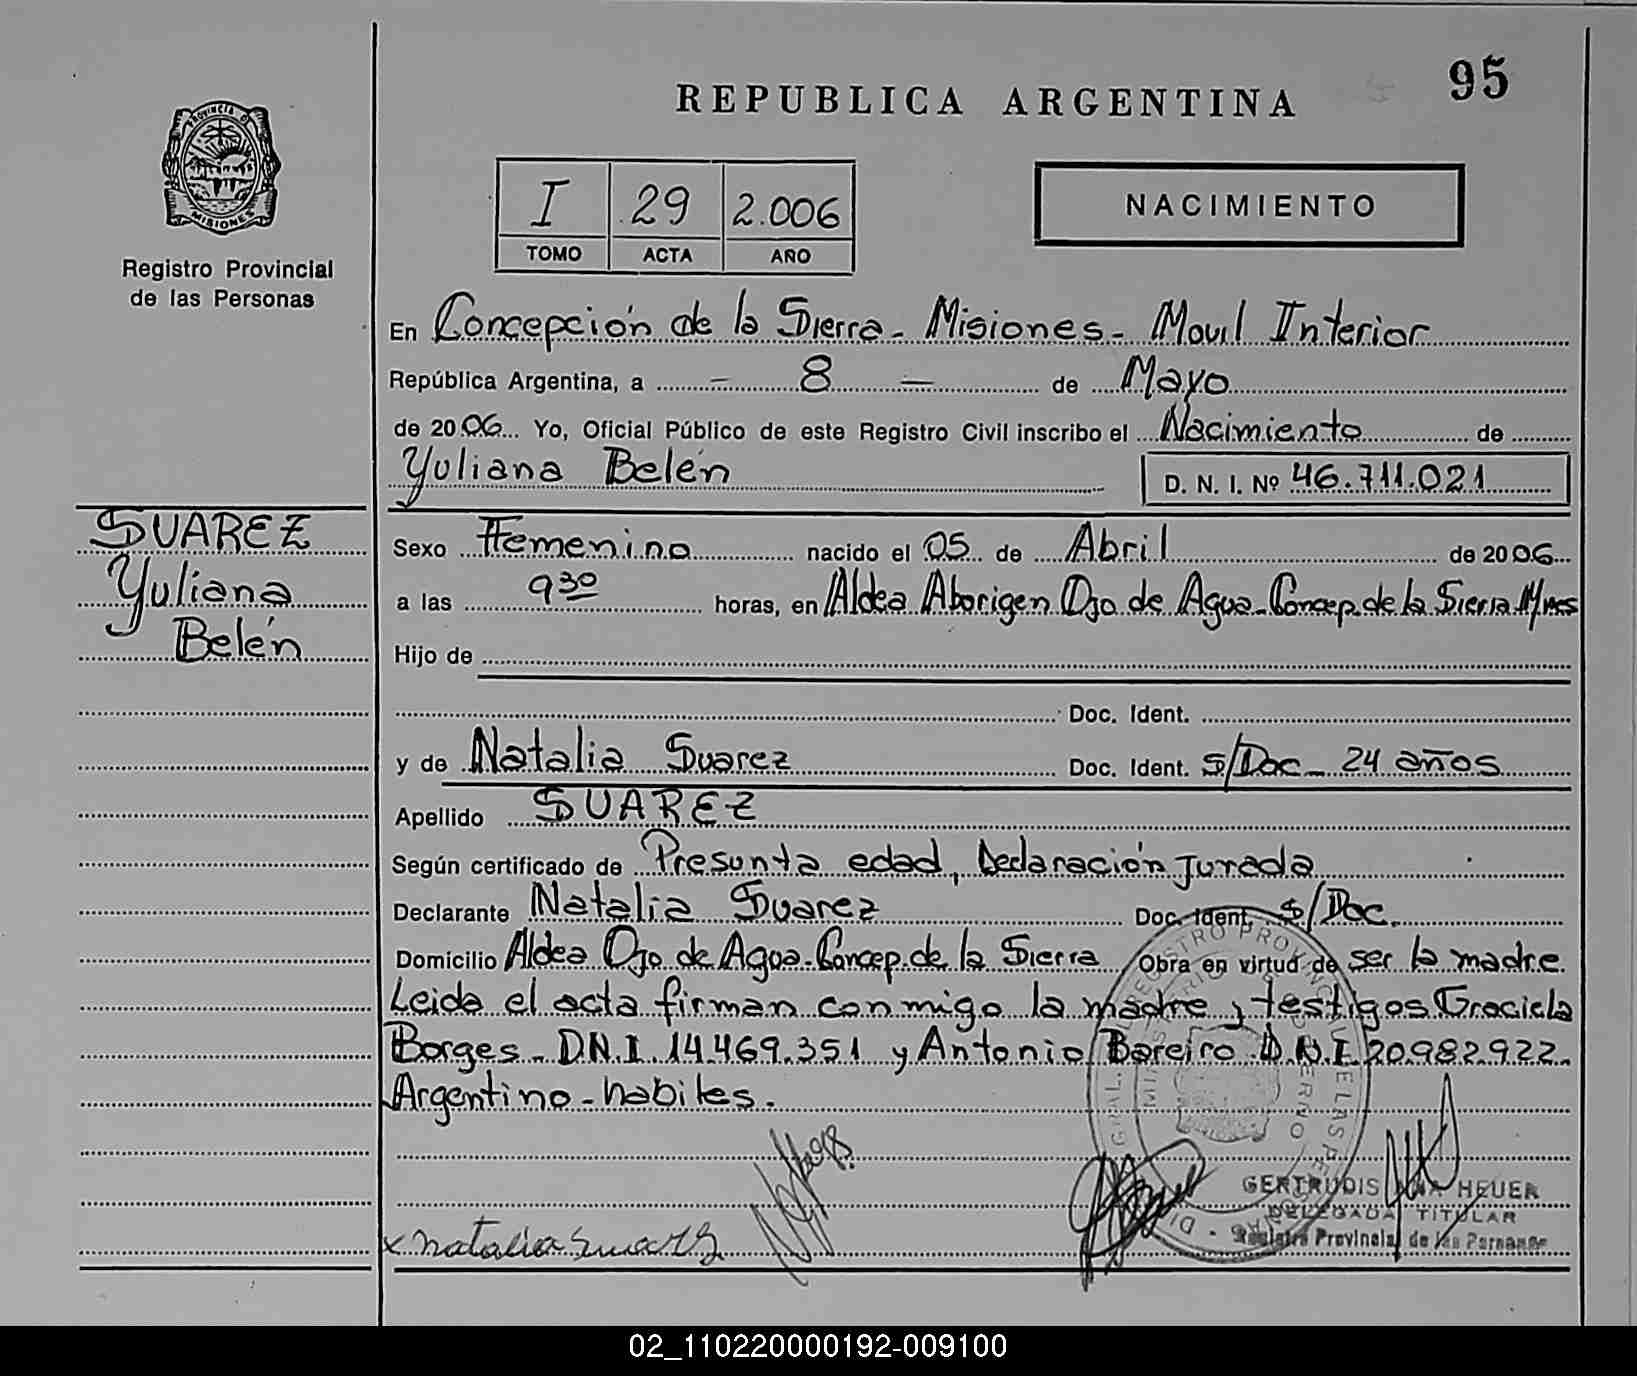 95
REPUBLICA ARGENTINA
PROVINCIA DE
MISIONES
Registro Provincial
de las Personas
I 29 2.006
TOMO ACTA AÑO
NACIMIENTO
En Concepción de la Sierra - Misiones - Movil Interior
República Argentina, a - 8 - de Mayo
de 2006 Yo, Oficial Público de este Registro Civil inscribo el Nacimiento de
Yuliana Belén D. N. I. Nº 46.711.021
SUAREZ
Yuliana
Belén
Sexo Femenino nacido el 05 de Abril de 2006
a las 9 30 horas, en Aldea Aborigen Ojo de Agua - Concep. de la Sierra Mnes
Hijo de
Doc. Ident.
y de Natalia Suarez Doc. Ident. s/Doc - 24 años
Apellido SUAREZ
Según certificado de Presunta edad, Declaración jurada
Declarante Natalia Suarez Doc. Ident. s/Doc.
Domicilio Aldea Ojo de Agua - Concep. de la Sierra Obra en virtud de ser la madre.
Leida el acta firman conmigo la madre y testigos Graciela
Borges - D.N.I. 14.469.351 y Antonio Bareiro D.N.I 20.982.922.
Argentino - habiles.
GERTRUDIS ANA HEUER
DELEGADA TITULAR
Registro Provincial de las Personas
x natalia Suarez
02_110220000192-009100